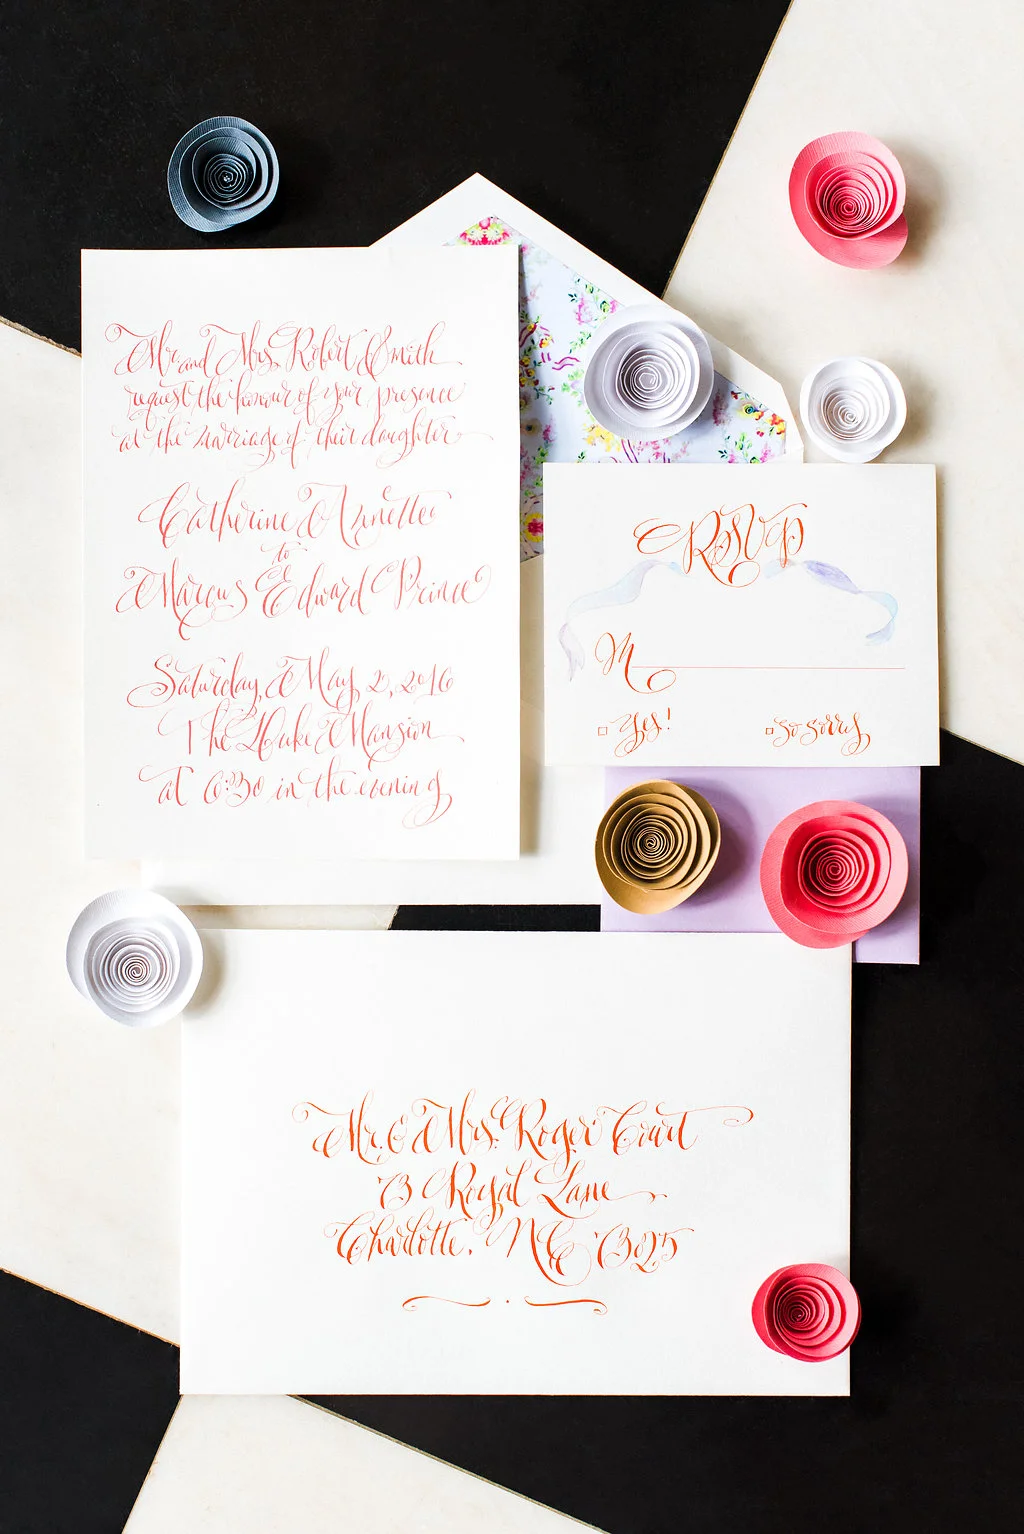 Mr. and Mrs. Robert Smith
request the honour of your presence
at the marriage of their daughter
Catherine Annette
to
Marcus Edward Prince
Saturday, May 2, 2016
The Duke Mansion
at 6:30 in the evening
RSVP
M
Yes!
So Sorry
Mr. & Mrs. Roger Court
13 Royal Lane
Charlotte, NC 13025